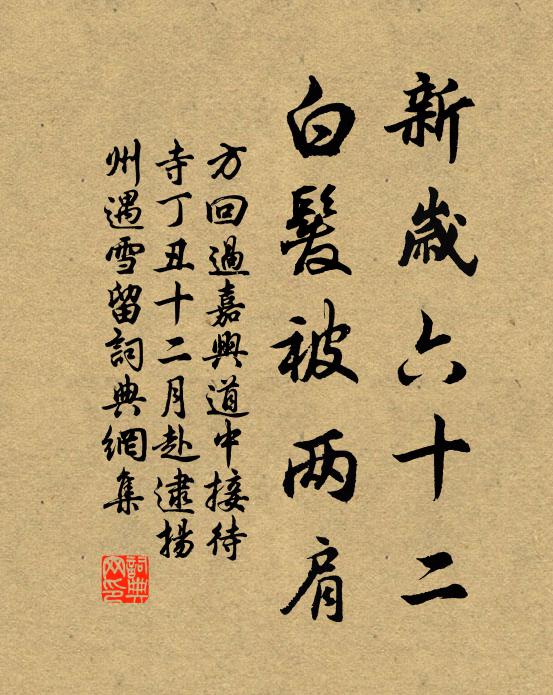 新歲六十二
白髮被两肩
方回過嘉興道中接待
寺丁丑十二月赴逮揚
州遇雪留詞典網集
詞典网印